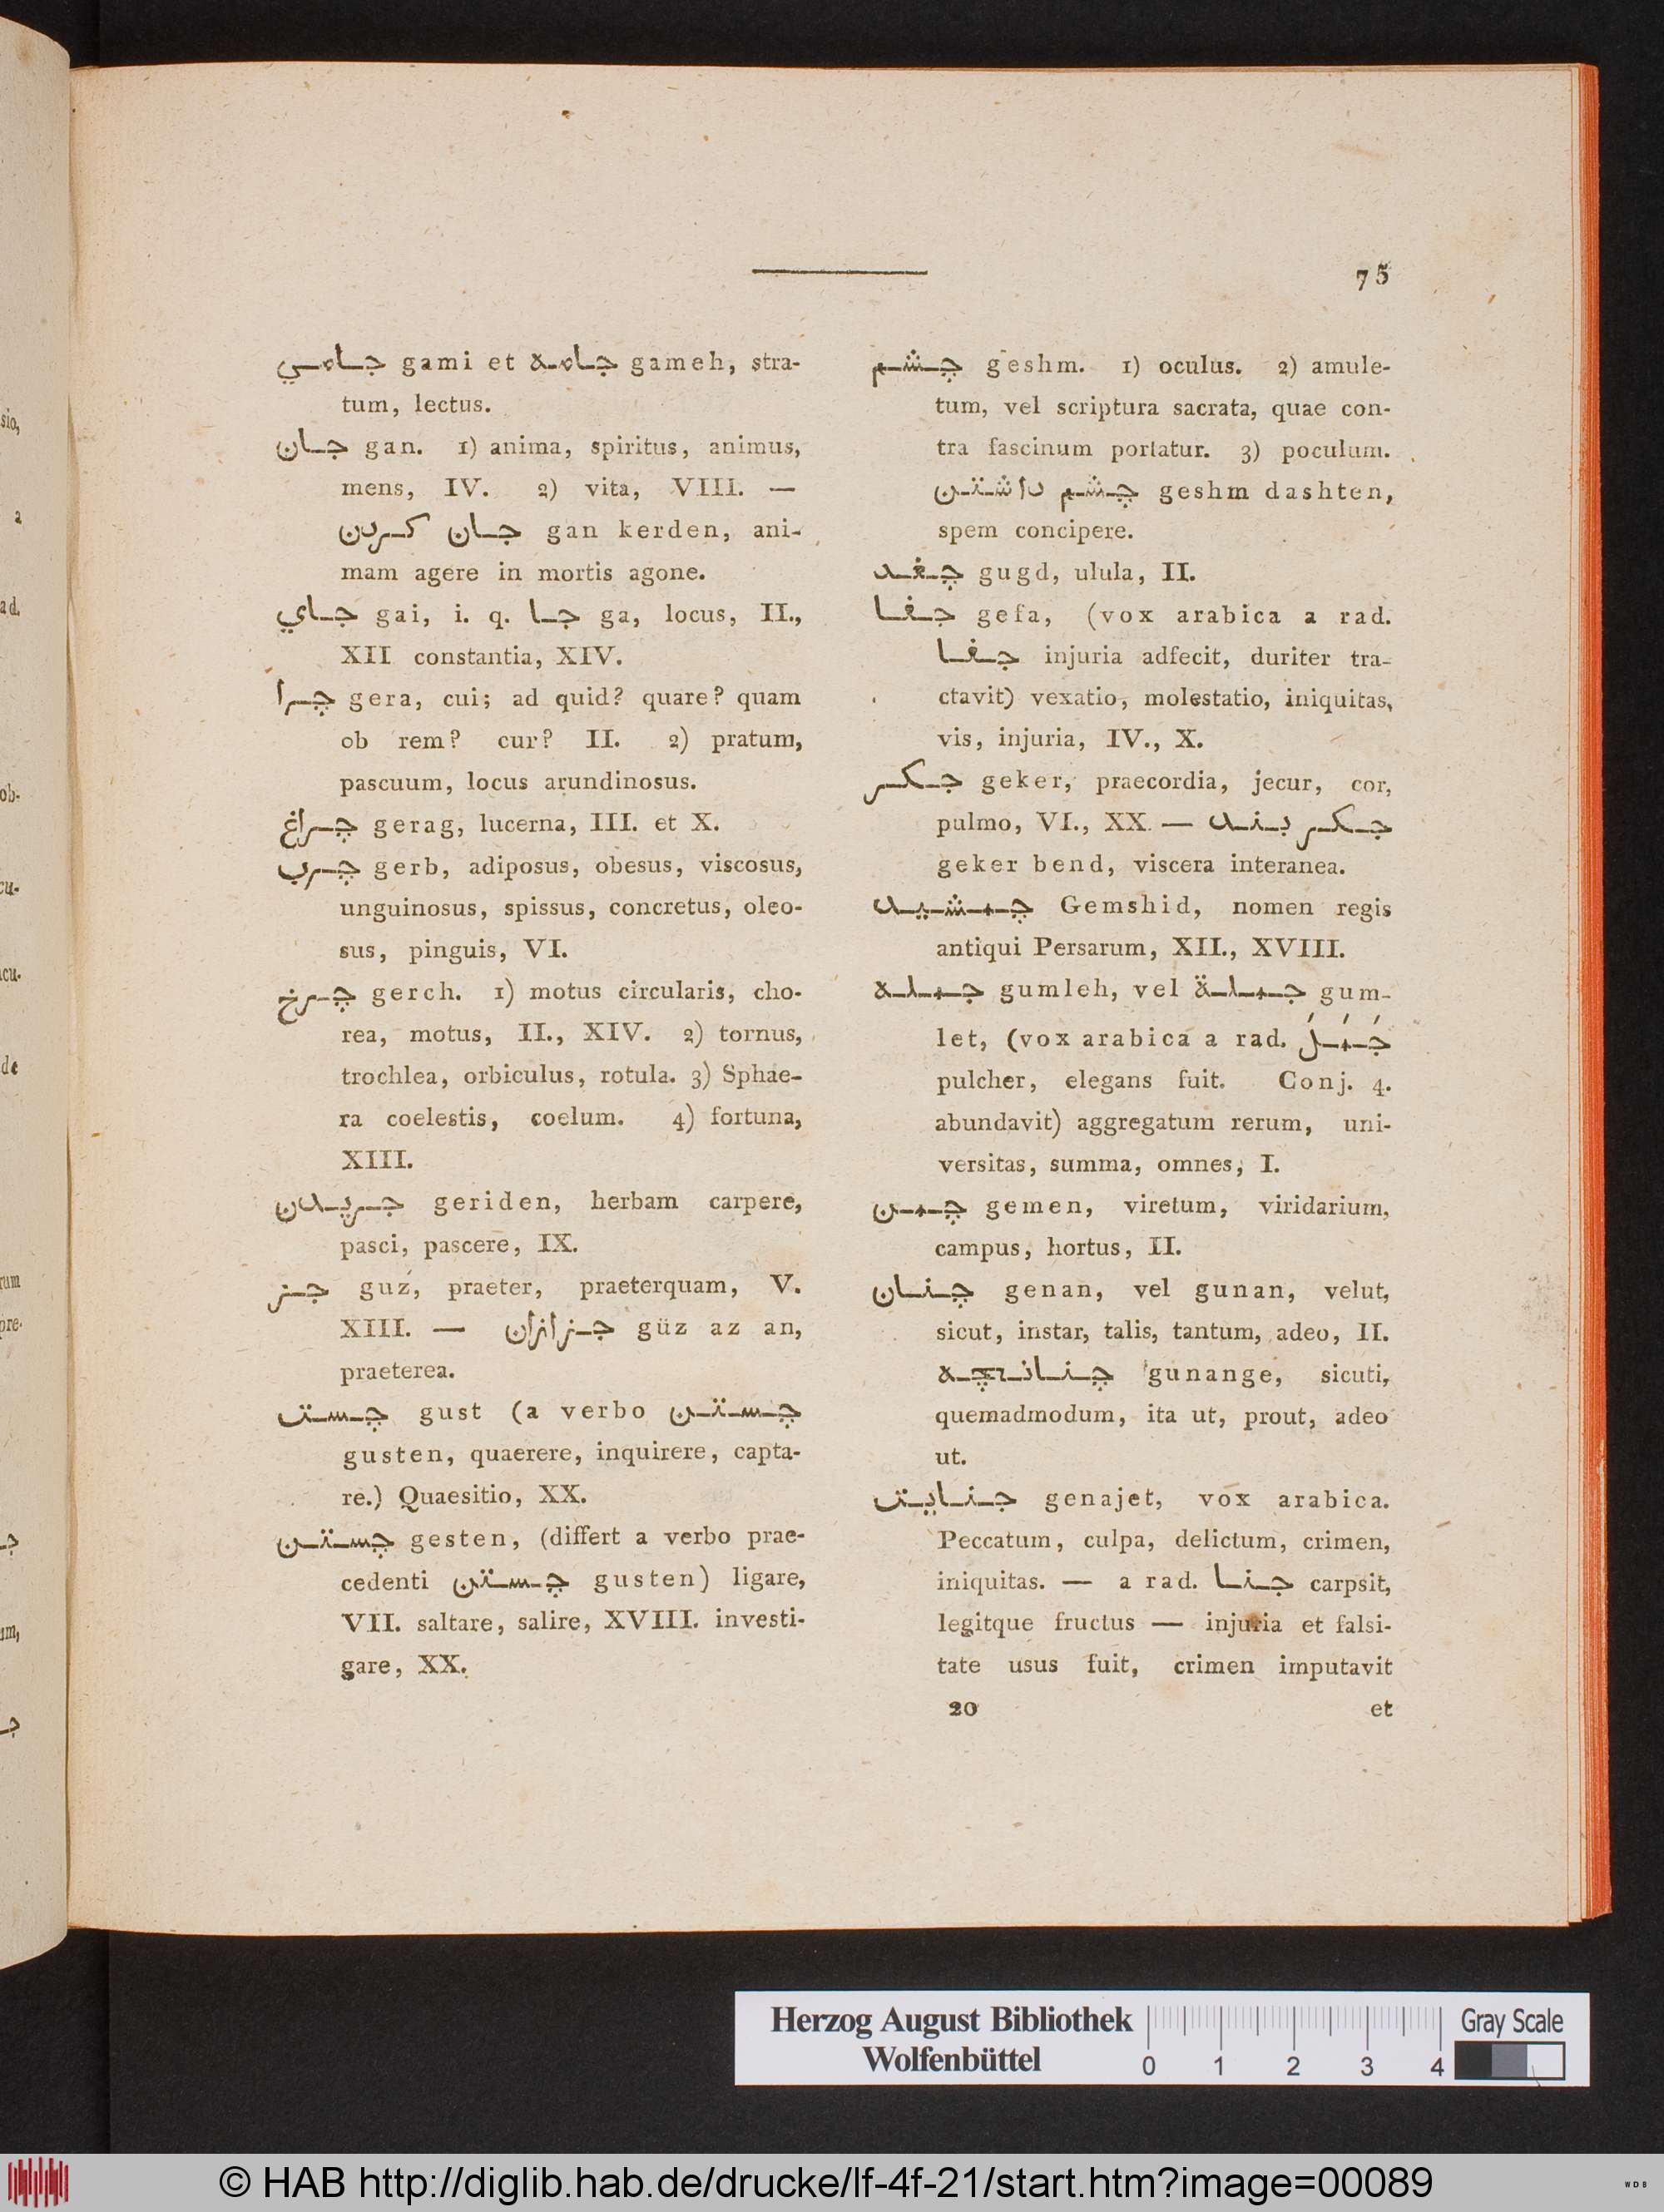 75
جامي gami et جامه gameh, stra-
tum, lectus.
جان gan. 1) anima, spiritus, animus,
mens, IV. 2) vita, VIII. —
جان كردن gan kerden, ani-
mam agere in mortis agone.
جاي gai, i. q. جا ga, locus, II.,
XII constantia, XIV.
چرا gera, cui; ad quid? quare? quam
ob rem? cur? II. 2) pratum,
pascuum, locus arundinosus.
چراغ gerag, lucerna, III. et X.
چرب gerb, adiposus, obesus, viscosus,
unguinosus, spissus, concretus, oleo-
sus, pinguis, VI.
چرخ gerch. 1) motus circularis, cho-
rea, motus, II., XIV. 2) tornus,
trochlea, orbiculus, rotula. 3) Sphae-
ra coelestis, coelum. 4) fortuna,
XIII.
جريدن geriden, herbam carpere,
pasci, pascere, IX.
جز guz, praeter, praeterquam, V.
XIII. — جز از ان güz az an,
praeterea.
چست gust (a verbo چستن
gusten, quaerere, inquirere, capta-
re.) Quaesitio, XX.
چستن gesten, (differt a verbo prae-
cedenti چستن gusten) ligare,
VII. saltare, salire, XVIII. investi-
gare, XX.
چشم geshm. 1) oculus. 2) amule-
tum, vel scriptura sacrata, quae con-
tra fascinum portatur. 3) poculum.
چشم داشتن geshm dashten,
spem concipere.
چغد gugd, ulula, II.
جفا gefa, (vox arabica a rad.
جفا injuria adfecit, duriter tra-
ctavit) vexatio, molestatio, iniquitas,
vis, injuria, IV., X.
جكر geker, praecordia, jecur, cor,
pulmo, VI., XX. — جكر بند
geker bend, viscera interanea.
جمشيد Gemshid, nomen regis
antiqui Persarum, XII., XVIII.
جمله gumleh, vel جملة gum-
let, (vox arabica a rad. جَمَلَ
pulcher, elegans fuit. Conj. 4.
abundavit) aggregatum rerum, uni-
versitas, summa, omnes, I.
چمن gemen, viretum, viridarium,
campus, hortus, II.
چنان genan, vel gunan, velut,
sicut, instar, talis, tantum, adeo, II.
چنانچه gunange, sicuti,
quemadmodum, ita ut, prout, adeo
ut.
جنايت genajet, vox arabica.
Peccatum, culpa, delictum, crimen,
iniquitas. — a rad. جنا carpsit,
legitque fructus — injuria et falsi-
tate usus fuit, crimen imputavit
20 et
Herzog August Bibliothek
Wolfenbüttel
0 1 2 3 4
Gray Scale
© HAB http://diglib.hab.de/drucke/lf-4f-21/start.htm?image=00089